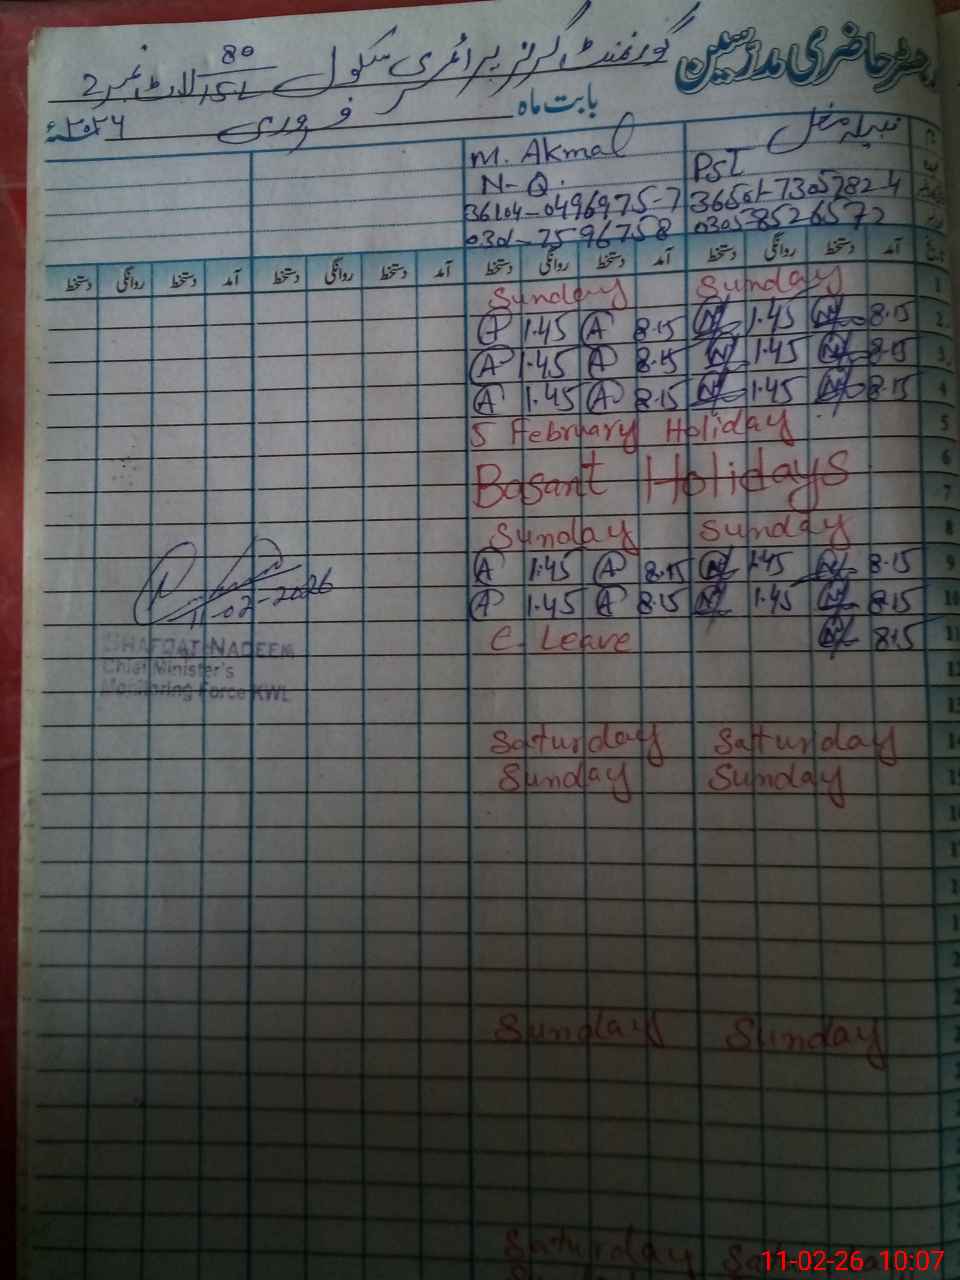 رجسٹر حاضری مدرسین گورنمنٹ گرلز پرائمری سکول 80/15L لاٹ نمبر 2
بابت ماہ فروری ۲۰۲۶ء
نبیلہ مغل M. Akmal
PST N-Q.
36501-7305782-4 36104-0496975-7
03058526572 0301-7596758
آمد دستخط روانگی دستخط آمد دستخط روانگی دستخط آمد دستخط روانگی دستخط آمد دستخط روانگی دستخط
Sunday Sunday 1
A 1.45 A 8.15 1.45 8.15 2
A 1.45 A 8.15 1.45 8.15 3
A 1.45 A 8.15 1.45 8.15 4
5 February Holiday 5
6
Basant Holidays
7
Sunday Sunday 8
A 1.45 A 8.15 1.45 8.15 9
A 1.45 A 8.15 1.45 8.15 10
C. Leave 8.15 11
11-02-2026
SHAFQAT NADEEM
Chief Minister's
Monitoring Force KWL
Saturday Saturday
Sunday Sunday
Sunday Sunday
Saturday
11-02-26 10:07